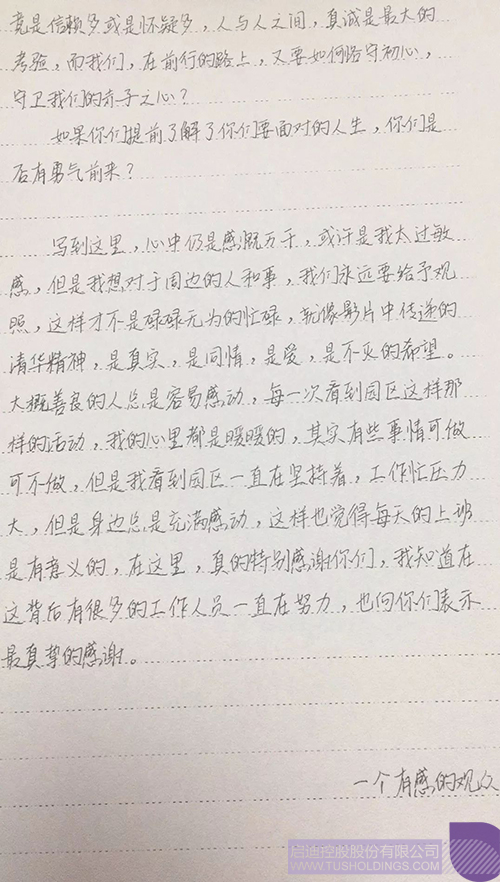 竟是信赖多或是怀疑多，人与人之间，真诚是最大的
考验，而我们，在前行的路上，又要如何恪守初心，
守卫我们的赤子之心？
如果你们提前了解了你们要面对的人生，你们是
否有勇气前来？
写到这里，心中仍是感慨万千，或许是我太过敏
感，但是我想对于周边的人和事，我们永远要给予观
照，这样才不是碌碌无为的忙碌，就像影片中传递的
清华精神，是真实，是同情，是爱，是不灭的希望。
大概善良的人总是容易感动，每一次看到园区这样那
样的活动，我的心里都是暖暖的，其实有些事情可做
可不做，但是我看到园区一直在坚持着，工作忙压力
大，但是身边总是充满感动，这样也觉得每天的上班
是有意义的，在这里，真的特别感谢你们，我知道在
这背后有很多的工作人员一直在努力，也向你们表示
最真挚的感谢。
一个有感的观众
启迪控股股份有限公司
WWW.TUSHOLDINGS.COM